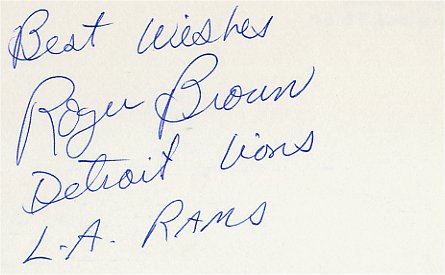 Best Wishes
Roger Brown
Detroit Lions
L.A. RAMS